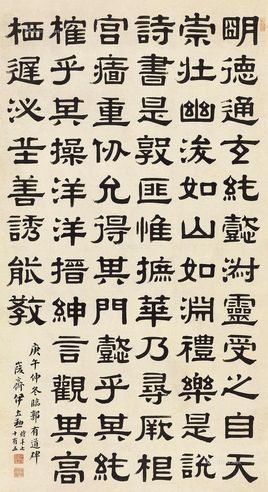 明德通玄純懿淑靈受之自天
崇壯幽浚如山如淵禮樂是說
詩書是敦匪惟摭華乃尋厥根
宮墻重仞允得其門懿乎其純
榷乎其操洋洋搢紳言觀其高
栖遲泌丘善誘能教
庚午仲冬臨郭有道碑
峻齋伊立勳時年七十有五